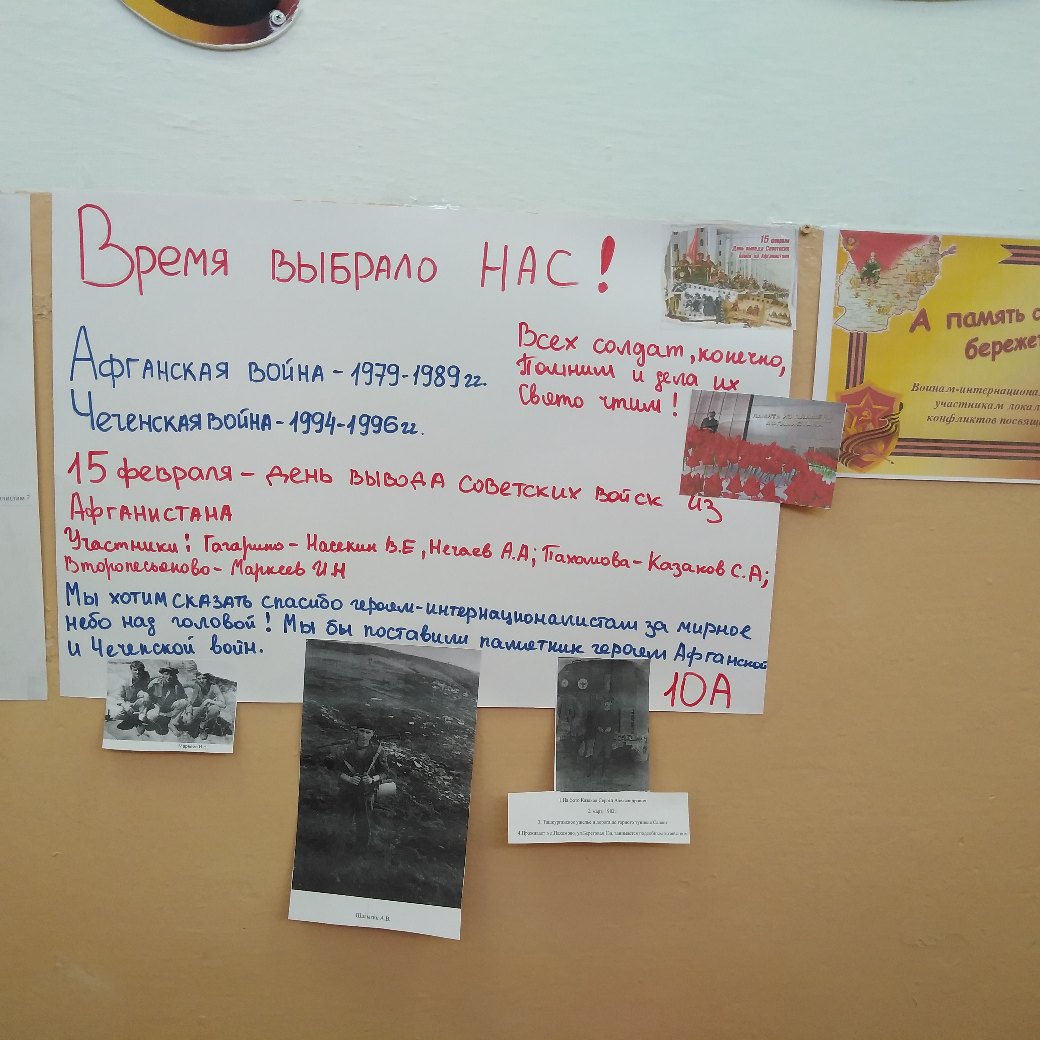 Время выбрало НАС!
15 февраля
День вывода Советских
войск из Афганистана
Афганская война - 1979-1989 гг.
Чеченская война - 1994-1996 гг.
Всех солдат, конечно,
Помним и дела их
Свято чтим!
15 февраля - день вывода советских войск из
Афганистана
Участники! Гагарино - Насекин В.Е, Нечаев А.А; Пахомова - Казаков С.А;
Маркеев И.Н
Мы хотим сказать спасибо героям-интернационалистам за мирное
небо над головой! Мы бы поставили памятник героям Афганской
и Чеченской войн.
10А
А память с
бережет
Воинам-интернационал
участникам локал
конфликтов посвящ
1.На фото Казаков Сергей Александрович